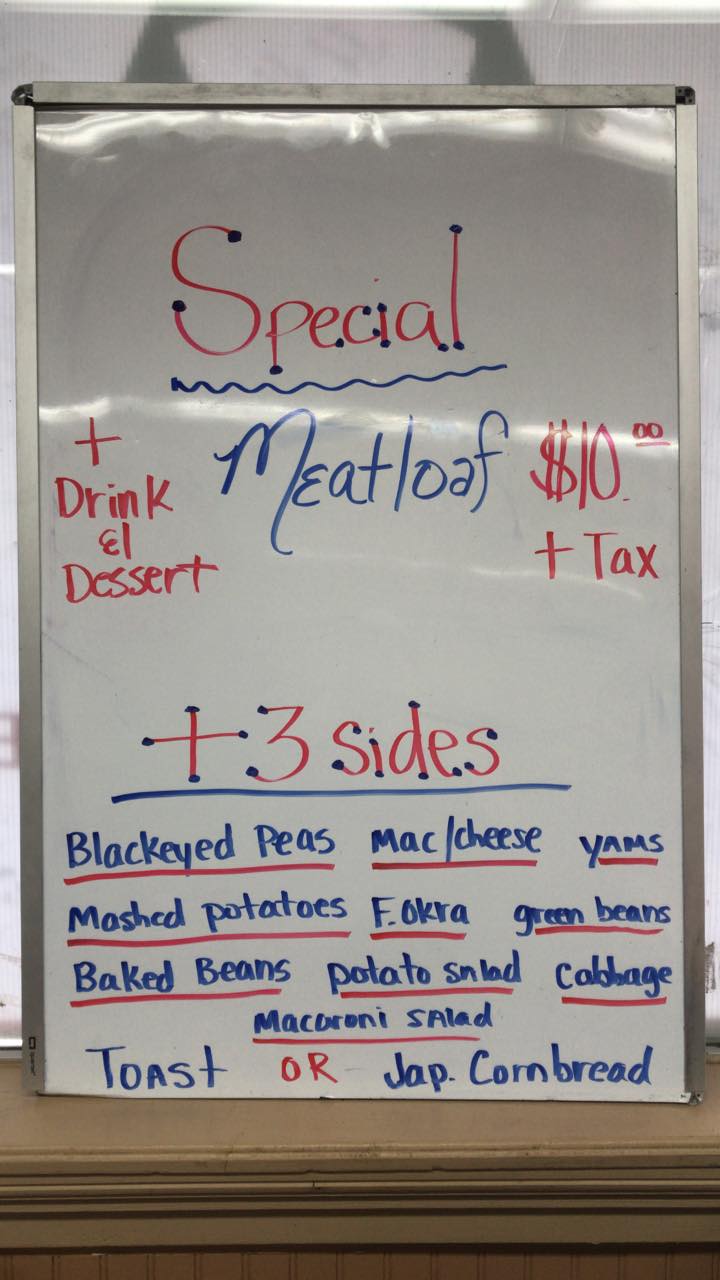 Special
Meatloaf
$10.00
+ Tax
+
Drink
&
Dessert
+3 sides
Blackeyed Peas Mac/cheese YAMS
Mashed potatoes F.Okra green beans
Baked Beans potato salad Cabbage
Macaroni SAlad
TOAST OR Jap. Cornbread